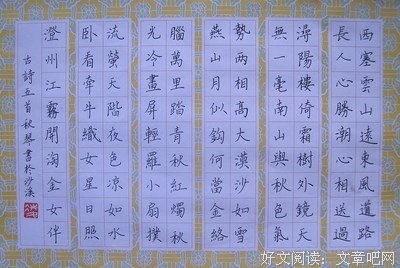 西塞雲山遠東風道路
長人心勝潮心相送過
潯陽樓倚霜樹外鏡天
無一毫南山與秋色氣
勢兩相高大漠沙如雪
燕山月似鈎何當金絡
腦萬里踏青秋紅燭秋
光冷畫屏輕羅小扇撲
流螢天階夜色涼如水
卧看牽牛織女星日照
澄州江霧開淘金女伴
古詩五首秋琴書於沙溪
好文阅读:文章吧网